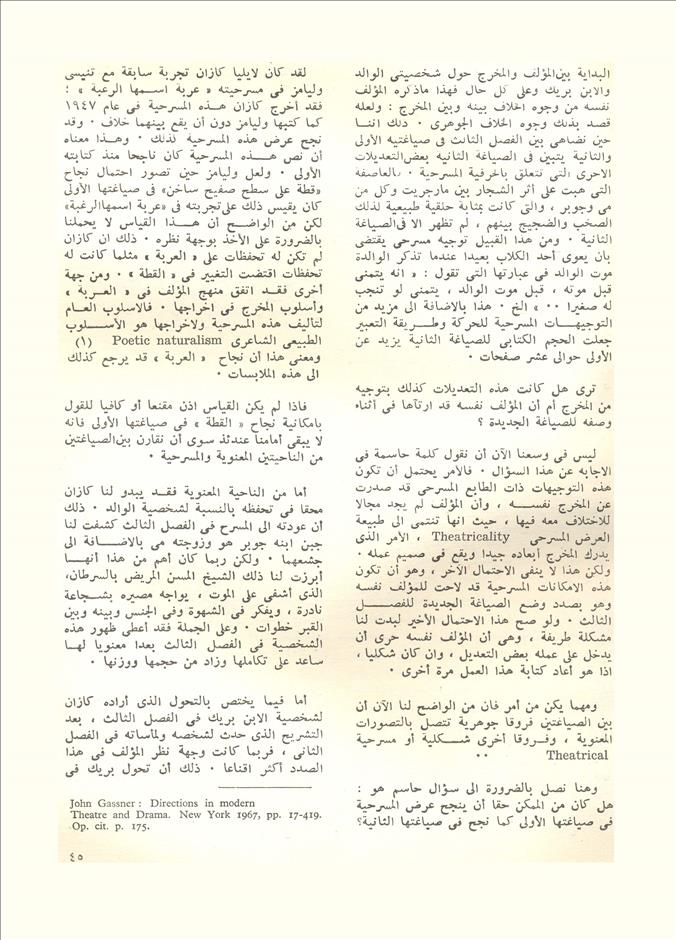 البداية بين المؤلف والمخرج حول شخصيتى الوالد
والابن بريك وعلى كل حال فهذا ماذكره المؤلف
نفسه من وجوه الخلاف بينه وبين المخرج : ولعله
قصد بذلك وجوه الخلاف الجوهرى . ذلك اننا
حين نضاهى بين الفصل الثالث فى صياغتيه الأولى
والثانية يتبين فى الصياغة الثانيه بعض التعديلات
الاخرى التى تتعلق باخرفية المسرحية . فالعاصفه
التى هبت على أثر الشجار بين مارجريت وكل من
مى وجوبر ، والتى كانت بمثابة خلفية طبيعية لذلك
الصخب والضجيج بينهم ، لم تظهر الا فى الصياغة
الثانية . ومن هذا القبيل توجيه مسرحى يقتضى
بان يعوى أحد الكلاب بعيدا عندما تذكر الوالدة
موت الوالد فى عبارتها التى تقول : « انه يتمنى
قبل موته ، قبل موت الوالد ، يتمنى لو تنجب
له صغيرا . . » الخ . هذا بالاضافة الى مزيد من
التوجيهات المسرحية للحركة وطريقة التعبير
جعلت الحجم الكتابى للصياغة الثانية يزيد عن
الأولى حوالى عشر صفحات .
ترى هل كانت هذه التعديلات كذلك بتوجيه
من المخرج أم أن المؤلف نفسه قد ارتآها فى أثناء
وصفه للصياغة الجديدة ؟
ليس فى وسعنا الآن أن نقول كلمة حاسمة فى
الاجابه عن هذا السؤال . فالأمر يحتمل أن تكون
هذه التوجيهات ذات الطابع المسرحى قد صدرت
عن المخرج نفسه ، وأن المؤلف لم يجد مجالا
للاختلاف معه فيها ، حيث انها تنتمى الى طبيعة
العرض المسرحى Theatricality ، الأمر الذى
يدرك المخرج أبعاده جيدا ويقع فى صميم عمله .
ولكن هذا لا ينفى الاحتمال الآخر ، وهو أن تكون
هذه الامكانات المسرحية قد لاحت للمؤلف نفسه
وهو بصدد وضع الصياغة الجديدة للفصل
الثالث . ولو صح هذا الاحتمال الأخير لبدت لنا
مشكلة طريفة ، وهى أن المؤلف نفسه حرى أن
يدخل على عمله بعض التعديل ، وان كان شكليا ،
اذا هو أعاد كتابة هذا العمل مرة أخرى .
ومهما يكن من أمر فان من الواضح لنا الآن أن
بين الصياغتين فروقا جوهرية تتصل بالتصورات
المعنوية ، وفروقا أخرى شكلية أو مسرحية
Theatrical . .
وهنا نصل بالضرورة الى سؤال حاسم هو :
هل كان من الممكن حقا أن ينجح عرض المسرحية
فى صياغتها الأولى كما نجح فى صياغتها الثانية؟
لقد كان لايليا كازان تجربة سابقة مع تنيسى
وليامز فى مسرحيته « عربة اسمها الرغبة » ؛
فقد أخرج كازان هذه المسرحية فى عام ١٩٤٧
كما كتبها وليامز دون أن يقع بينهما خلاف . وقد
نجح عرض هذه المسرحية كذلك . وهذا معناه
أن نص هذه المسرحية كان ناجحا منذ كتابته
الأولى . ولعل وليامز حين تصور احتمال نجاح
«قطة على سطح صفيح ساخن» فى صياغتها الأولى
كان يقيس ذلك على تجربته فى «عربة اسمها الرغبة»
لكن من الواضح أن هذا القياس لا يحملنا
بالضرورة على الأخذ بوجهة نظره . ذلك ان كازان
لم تكن له تحفظات على « العربة » مثلما كانت له
تحفظات اقتضت التغيير فى « القطة » . ومن جهة
أخرى فقد اتفق منهج المؤلف فى « العربة »
وأسلوب المخرج فى اخراجها . فالاسلوب العام
لتأليف هذه المسرحية ولاخراجها هو الأسلوب
الطبيعى الشاعرى Poetic naturalism (١)
ومعنى هذا أن نجاح « العربة » قد يرجع كذلك
الى هذه الملابسات .
فاذا لم يكن القياس اذن مقنعا أو كافيا للقول
بامكانية نجاح « القطة » فى صياغتها الأولى فانه
لا يبقى أمامنا عندئذ سوى أن نقارن بين الصياغتين
من الناحيتين المعنوية والمسرحية .
أما من الناحية المعنوية فقد يبدو لنا كازان
محقا فى تحفظه بالنسبة لشخصية الوالد . ذلك
أن عودته الى المسرح فى الفصل الثالث كشفت لنا
جبن ابنه جوبر هو وزوجته مى بالاضافة الى
جشعهما . ولكن ربما كان أهم من هذا أنها
أبرزت لنا ذلك الشيخ المسن المريض بالسرطان،
الذى أشفى على الموت ، يواجه مصيره بشجاعة
نادرة ، ويفكر فى الشهوة وفى الجنس وبينه وبين
القبر خطوات . وعلى الجملة فقد أعطى ظهور هذه
الشخصية فى الفصل الثالث بعدا معنويا لها
ساعد على تكاملها وزاد من حجمها ووزنها .
أما فيما يختص بالتحول الذى أراده كازان
لشخصية الابن بريك فى الفصل الثالث ، بعد
التشريح الذى حدث لشخصه ولمأساته فى الفصل
الثانى ، فربما كانت وجهة نظر المؤلف فى هذا
الصدد أكثر اقناعا . ذلك أن تحول بريك فى
John Gassner : Directions in modern
Theatre and Drama. New York 1967, pp. 17-419.
Op. cit. p. 175.
٤٥